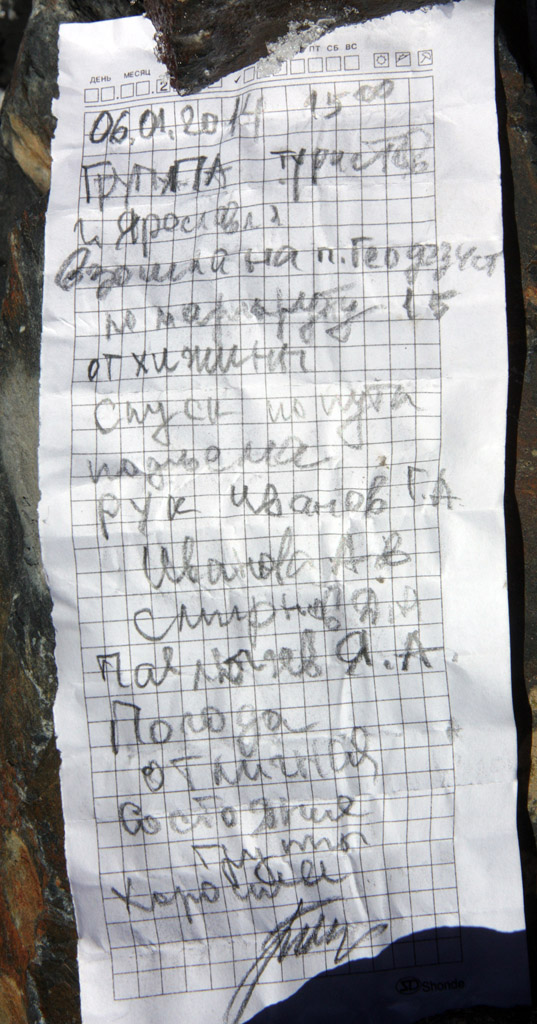 ДЕНЬ МЕСЯЦ ПТ СБ ВС
06.01.2014 15 00
ГРУППА туристов
г. Ярославля
взошла на п. Геодезист
по маршруту 1Б
от хижины
Спуск по пути
подъема
РУК Иванов Г.А
Иванова А В
Смирнов Д А
Я. А.
Погода
отличная
Состояние
группы
Хорошее
Shonde